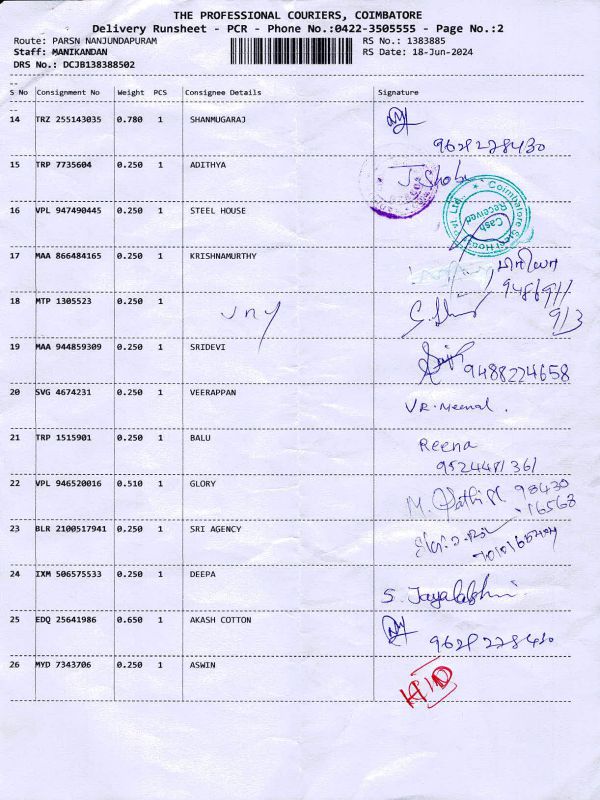 THE PROFESSIONAL COURIERS, COIMBATORE
Delivery Runsheet - PCR - Phone No.:0422-3505555 - Page No.:2
Route: PARSN NANJUNDAPURAM RS No.: 1383885
Staff: MANIKANDAN RS Date: 18-Jun-2024
DRS No.: DCJB138388502
S No Consignment No Weight PCS Consignee Details Signature
14 TRZ 255143035 0.780 1 SHANMUGARAJ
9629228430
15 TRP 7735604 0.250 1 ADITHYA
16 VPL 947490445 0.250 1 STEEL HOUSE
Coimbatore Steel House Pvt. Ltd.
Cash Received
17 MAA 866484165 0.250 1 KRISHNAMURTHY
18 MTP 1305523 0.250 1
19 MAA 944859309 0.250 1 SRIDEVI
9488224658
20 SVG 4674231 0.250 1 VEERAPPAN VR. Meenal.
21 TRP 1515901 0.250 1 BALU Reena
9524481361
22 VPL 946520016 0.510 1 GLORY 98430
16568
23 BLR 2100517941 0.250 1 SRI AGENCY
24 IXM 506575533 0.250 1 DEEPA
25 EDQ 25641986 0.650 1 AKASH COTTON
26 MYD 7343706 0.250 1 ASWIN